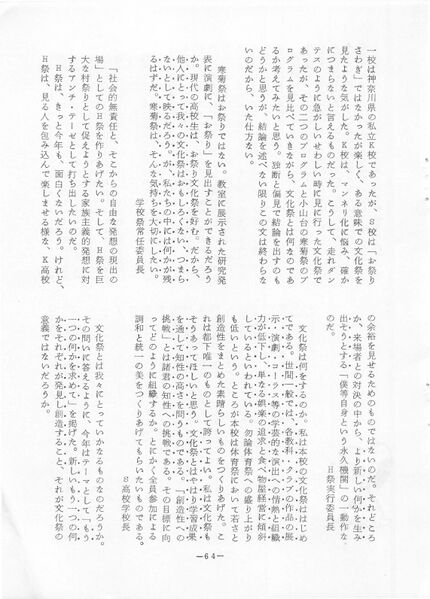 一校は神奈川県の私立K校であったが、S校は「お祭り
さわぎ」ではなかったが楽しく、ある意味での文化祭を
見たような気がした。K校は、マンネリ化に悩み、確か
につまらないと言えるものだった。こうして、走れダン
テスのように急がしいせわしい時に見に行った文化祭で
あったが、その二つのプログラムと小山台の寒菊祭のプ
ログラムを見比べていきながら、文化祭とは何なのであ
るか考えてみたいと思う。独断と偏見で結論を出すのも
どうかと思うが、結論を述べない限りこの文は終わらな
いのだから、いた仕方ない。
寒菊祭はお祭りではない。教室に展示された研究発
表に演劇に、「お祭り」を見出すことができるだろう
か。現代の高校生は、お祭り文化祭を好む。だから、
他人にとって我々の文化祭はおもしろくない、つまら
ないとして映るだろう。が、私たちの中には何かが残
るはずだ。寒菊祭は、そんな気持ちを大切にしたい。
学校祭常任委員長
「社会的無責任と、そこからの自由な発想の現出の
場」としてのH祭を作りあげたい。そして、H祭を巨
大な村祭りとして捉えようとする家族主義的発想に対
するアンチ・テーゼとして打ち出したいのだ。
H祭は、きっと今年も、面白くないだろう。けれど、
H祭は、見る人を包み込んで楽しませる様な、K高校
の余裕を見せるためのものではないのだ。それどころ
か、来場者との対決の中から、より新しい何かを生み
出そうとする「僕等自身という永久機関」の一動作な
のだ。
H祭実行委員長
文化祭は何をするのか。私は本校の文化祭ははじめ
てである。世間一般では、各教科・クラブの作品の展
示・演劇・コーラス等の学芸的な演出への情熱と組織
力が低下し、単なる娯楽の追求と食べ物屋経営に傾斜
しているといわれている。勿論体育祭への盛り上がり
も低いという。ところが本校は体育祭において若さと
創造性をまとめた素晴らしいものをつくりあげた。こ
れは都下唯一のものとして誇ってよい。私は文化祭も
そうあってほしいと思う。文化祭とはやはり学習成果
を通して知性の高さを問うものである。「創造性への
挑戦」とは諸君の知性への挑戦である。その目標に向
ってどのように組織するか。とにかく全員参加による
調和と統一の美をつくりあげてもらいたいものである。
S高校学校長
文化祭とは我々にとっていかなるものなのだろうか。
その問いに答えるように、今年はテーマとして「もう
一つの何かを求めて」を掲げた。新しいもう一つの何
かをそれぞれが発見し創造すること、それが文化祭の
意義ではないだろうか。
—64—